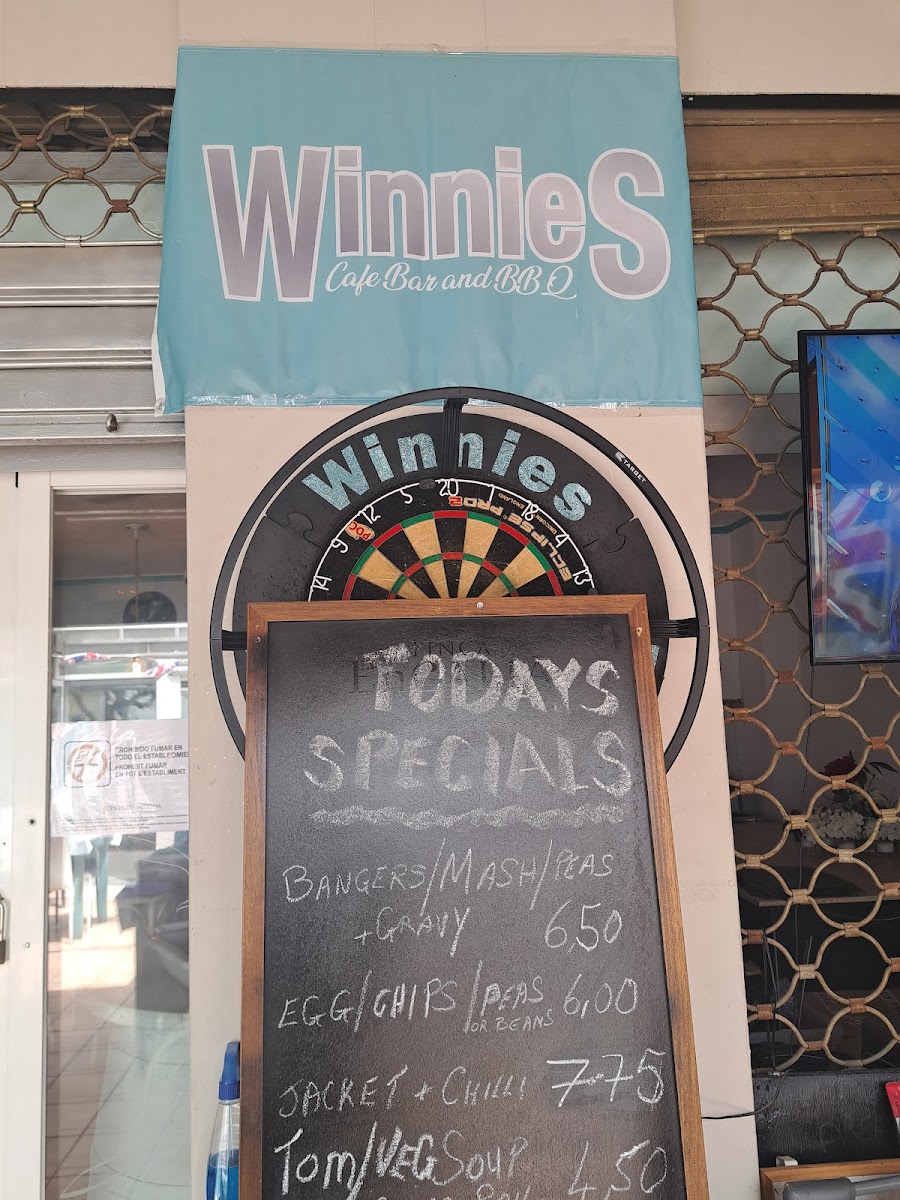 WinnieS
Cafe Bar and BBQ
Winnies
TARGET
5 20
12 18
9 4
14 13
PDC
ECLIPSE PRO2
UNICORN
ENGLAND
FINCA
TODAYS
SPECIALS
BANGERS/MASH/PEAS
+GRAVY 6,50
EGG/CHIPS/PEAS 6,00
OR BEANS
JACKET + CHILLI 7-75
TOM/VEG SOUP 4,50
PROHIBIDO FUMAR EN
TODO EL ESTABLECIMIE
PROHIBIT FUMAR
EN TOT L'ESTABLIMENT